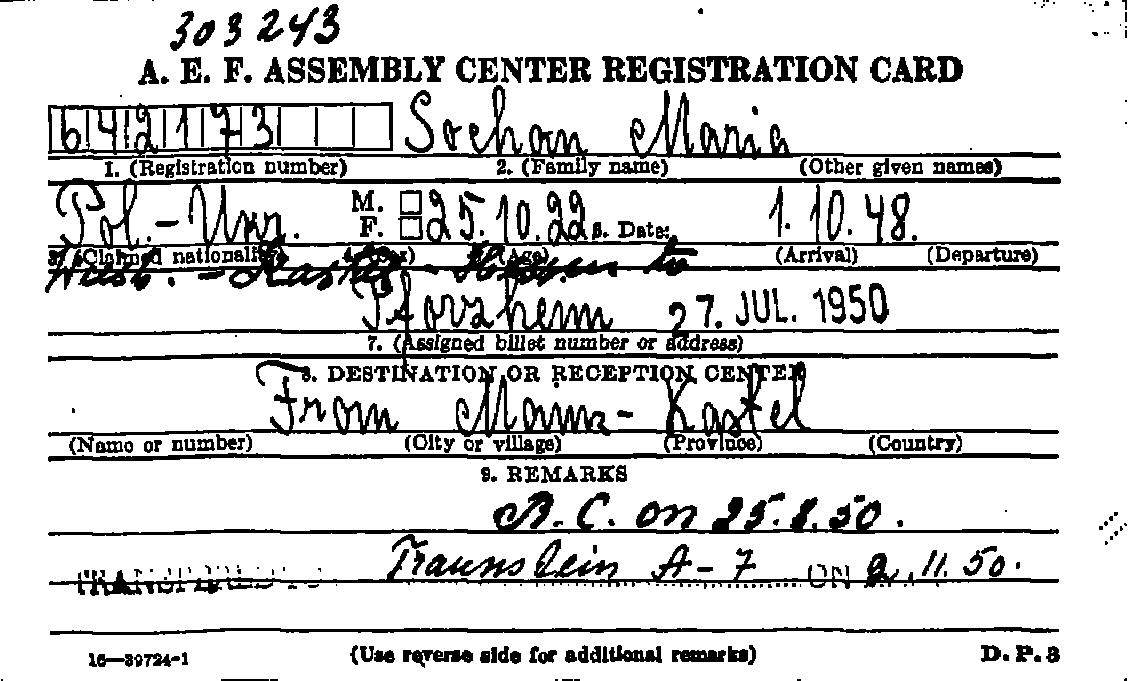 303243
A. E. F. ASSEMBLY CENTER REGISTRATION CARD
642173 Sochan Maria
1. (Registration number) 2. (Family name) (Other given names)
Pol.-Ukr. M. F. 25.10.22 6. Date: 1.10.48.
3. (Claimed nationality) 4. (Sex) (Age) (Arrival) (Departure)
Wiesb. - Kastel - Hessen to
Pforzheim 27. JUL. 1950
7. (Assigned billet number or address)
8. DESTINATION OR RECEPTION CENTER
From Mainz-Kastel
(Name or number) (City or village) (Province) (Country)
9. REMARKS
A.C. on 25.8.50.
TRANSFERRED TO Traunstein A-7 ON 2.11.50.
16—39724-1 (Use reverse side for additional remarks) D.P.3